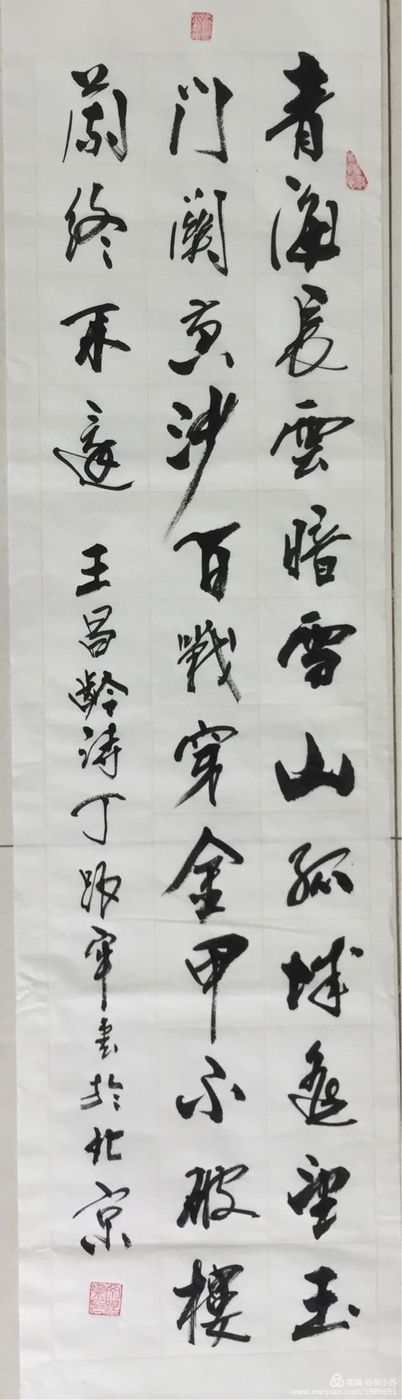 青海長雲暗雪山孤城遥望玉
門關黄沙百戰穿金甲不破樓
蘭終不還 王昌齡詩丁軍書於北京
美篇
www.meipian.cn/c/1989651